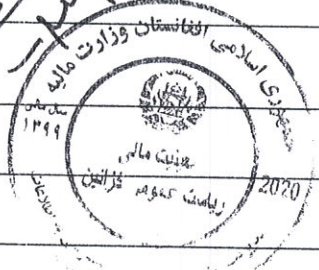 جمهوری اسلامی افغانستان وزارت مالیه
سال مالی
۱۳۹۹
معینیت مالی
ریاست عمومی خزائین
2020